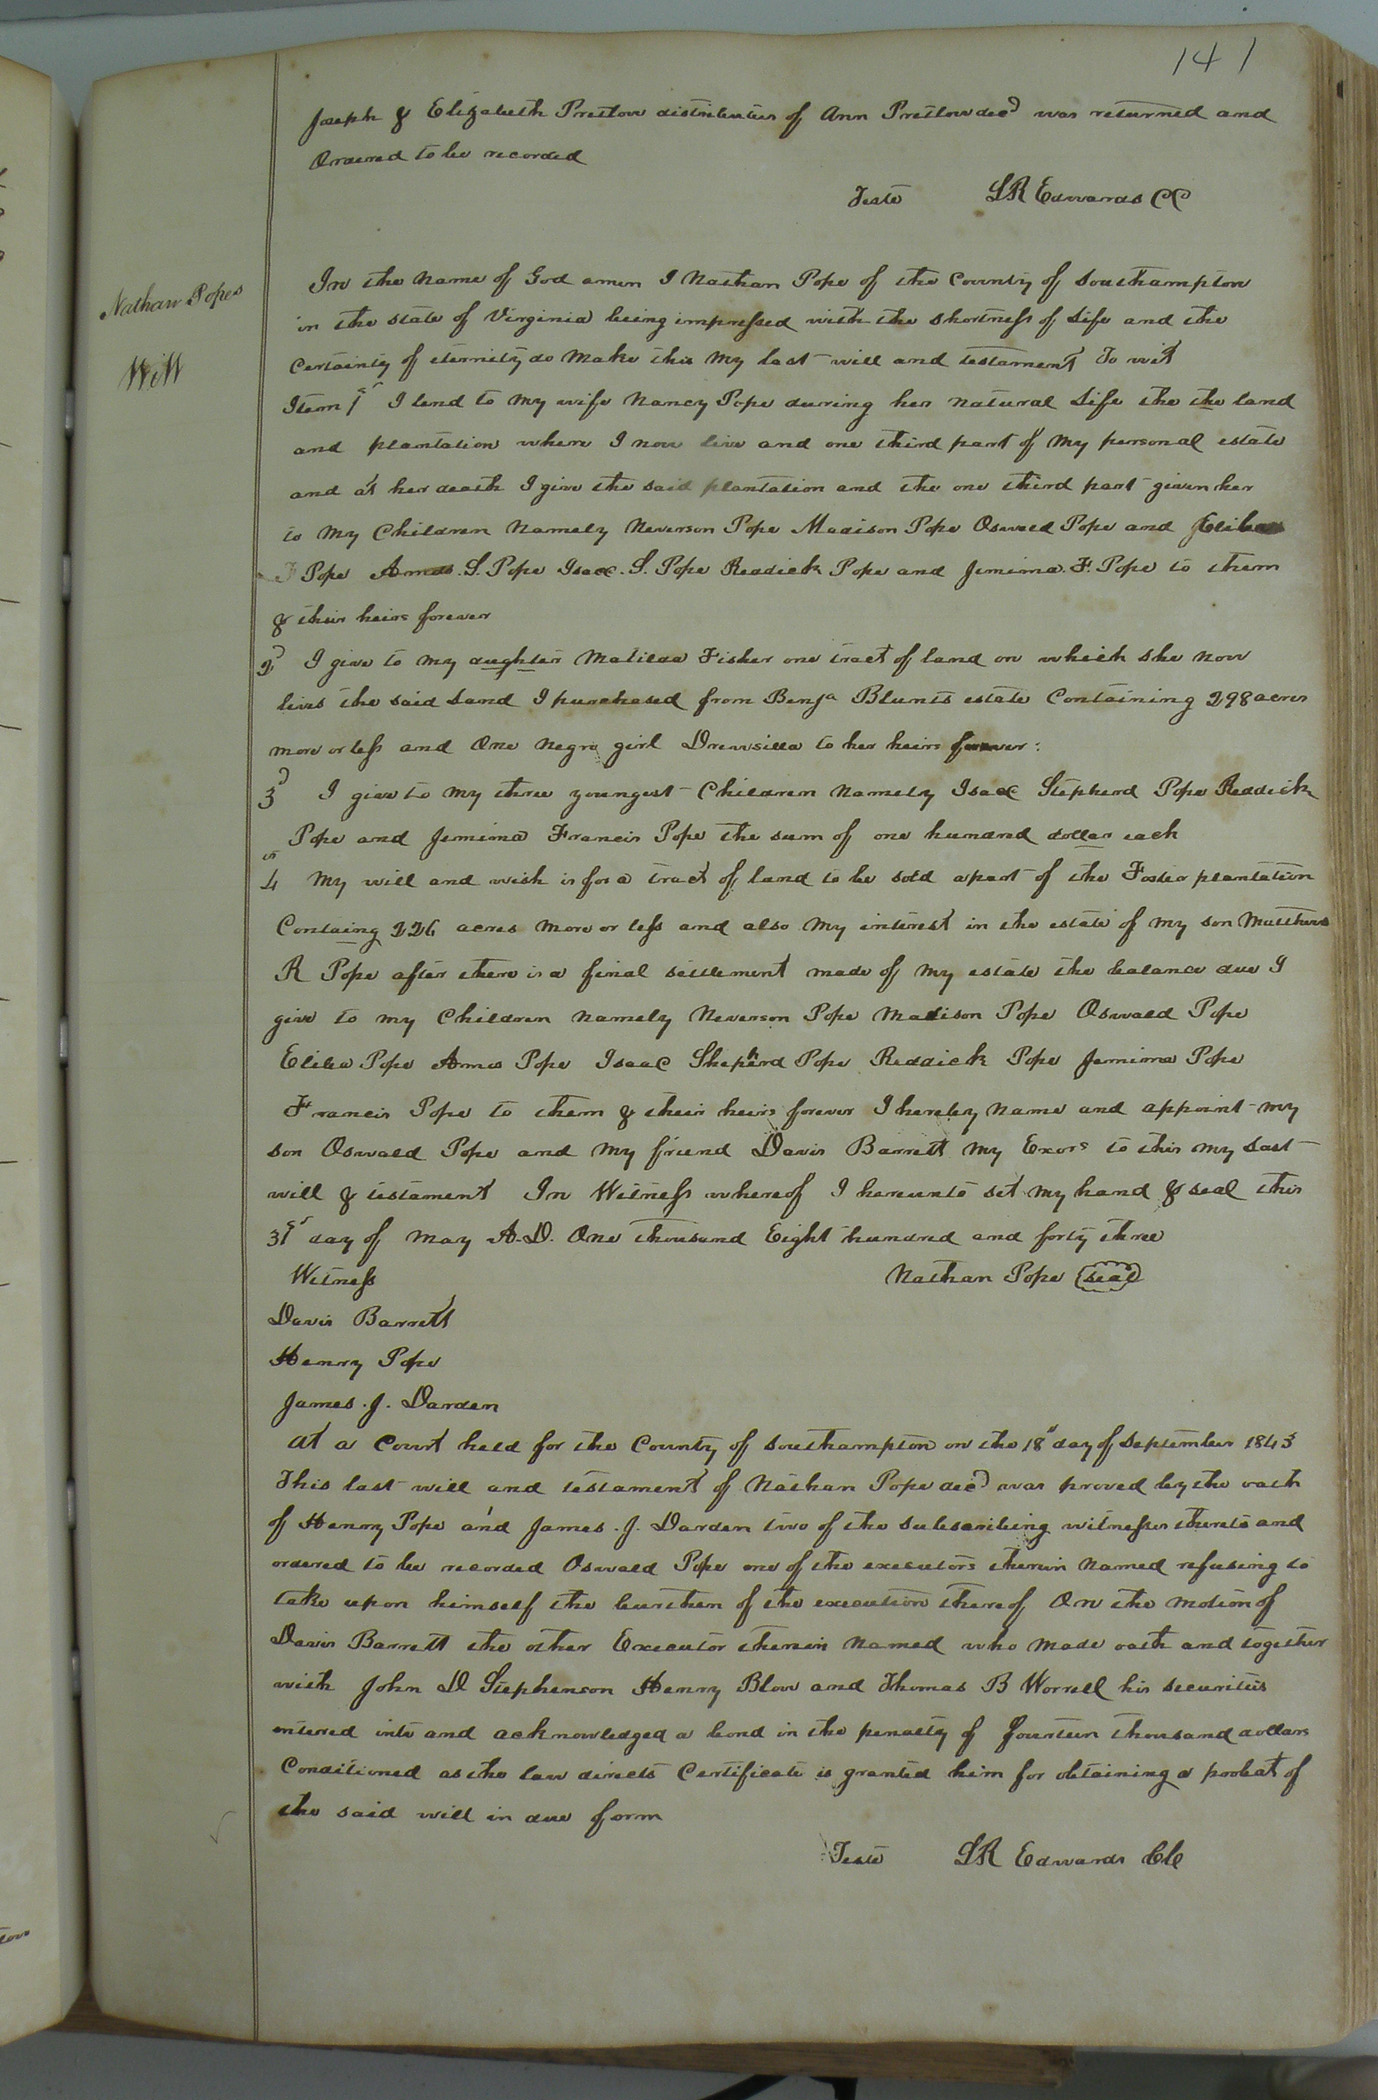 141
Joseph & Elizabeth Pretlow distributees of Ann Pretlow decd was returned and
Ordered to be recorded
Teste L R Edwards CC
Nathan Popes
Will
In the name of God amen I Nathan Pope of the County of Southampton
in the state of Virginia being impressed with the shortness of Life and the
Certainty of eternity do Make this My last will and testament To wit
Item 1st I lend to my wife Nancy Pope during her natural Life the the land
and plantation where I now live and one third part of My personal estate
and at her death I give the said plantation and the one third part given her
to My Children Namely Neverson Pope Madison Pope Oswald Pope and
Pope Amos S. Pope Isaac. S. Pope Reddick Pope and Jemima. F. Pope to them
& their heirs forever
2d I give to my aughter Matilda Fisher one tract of land on which she now
lives the said Land I purchased from Benja Blunts estate Containing 298 acres
more or less and One Negro girl Drewsilla to her heirs forever:
3d I give to My three youngest Children Namely Isaac Stepherd Pope Reddick
Pope and Jemima Francis Pope the sum of one hundred dollar each
4 My will and wish is for a tract of land to be sold apart of the Foster plantation
Containg 226 acres More or less and also My interest in the estate of my son Matthews
R Pope after there is a final settlement made of My estate the balance due I
give to my Children Namely Neverson Pope Madison Pope Oswald Pope
Eliba Pope Amos Pope Isaac Shepherd Pope Reddick Pope Jemima Pope
Francis Pope to them & their heirs forever I hereby Name and appoint my
son Oswald Pope and My friend Davis Barrett My Exors to this My Last
will & testament In Witness whereof I hereunto set My hand & seal this
31st day of May A.D. One thousand Eight hundred and forty three
Witness Nathan Pope seal
Davis Barrett
Henry Pope
James. J. Darden
At a Court held for the County of Southampton on the 18th day of September 1843
This last will and testament of Nathan Pope decd was proved by the oath
of Henry Pope and James. J. Darden two of the subscribing witnesses thereto and
ordered to be recorded Oswald Pope one of the executors therein Named refusing to
take upon himself the burthen of the execution thereof On the Motion of
Davis Barrett the other Executor therein Named who Made oath and together
with John D Stephenson Henry Blow and Thomas B Worrell his securities
entered into and acknowledged a bond in the penalty of fourteen thousand dollars
Conditioned as the law directs Certificate is granted him for obtaining a probat of
the said will in due form
Teste L R Edwards ClC